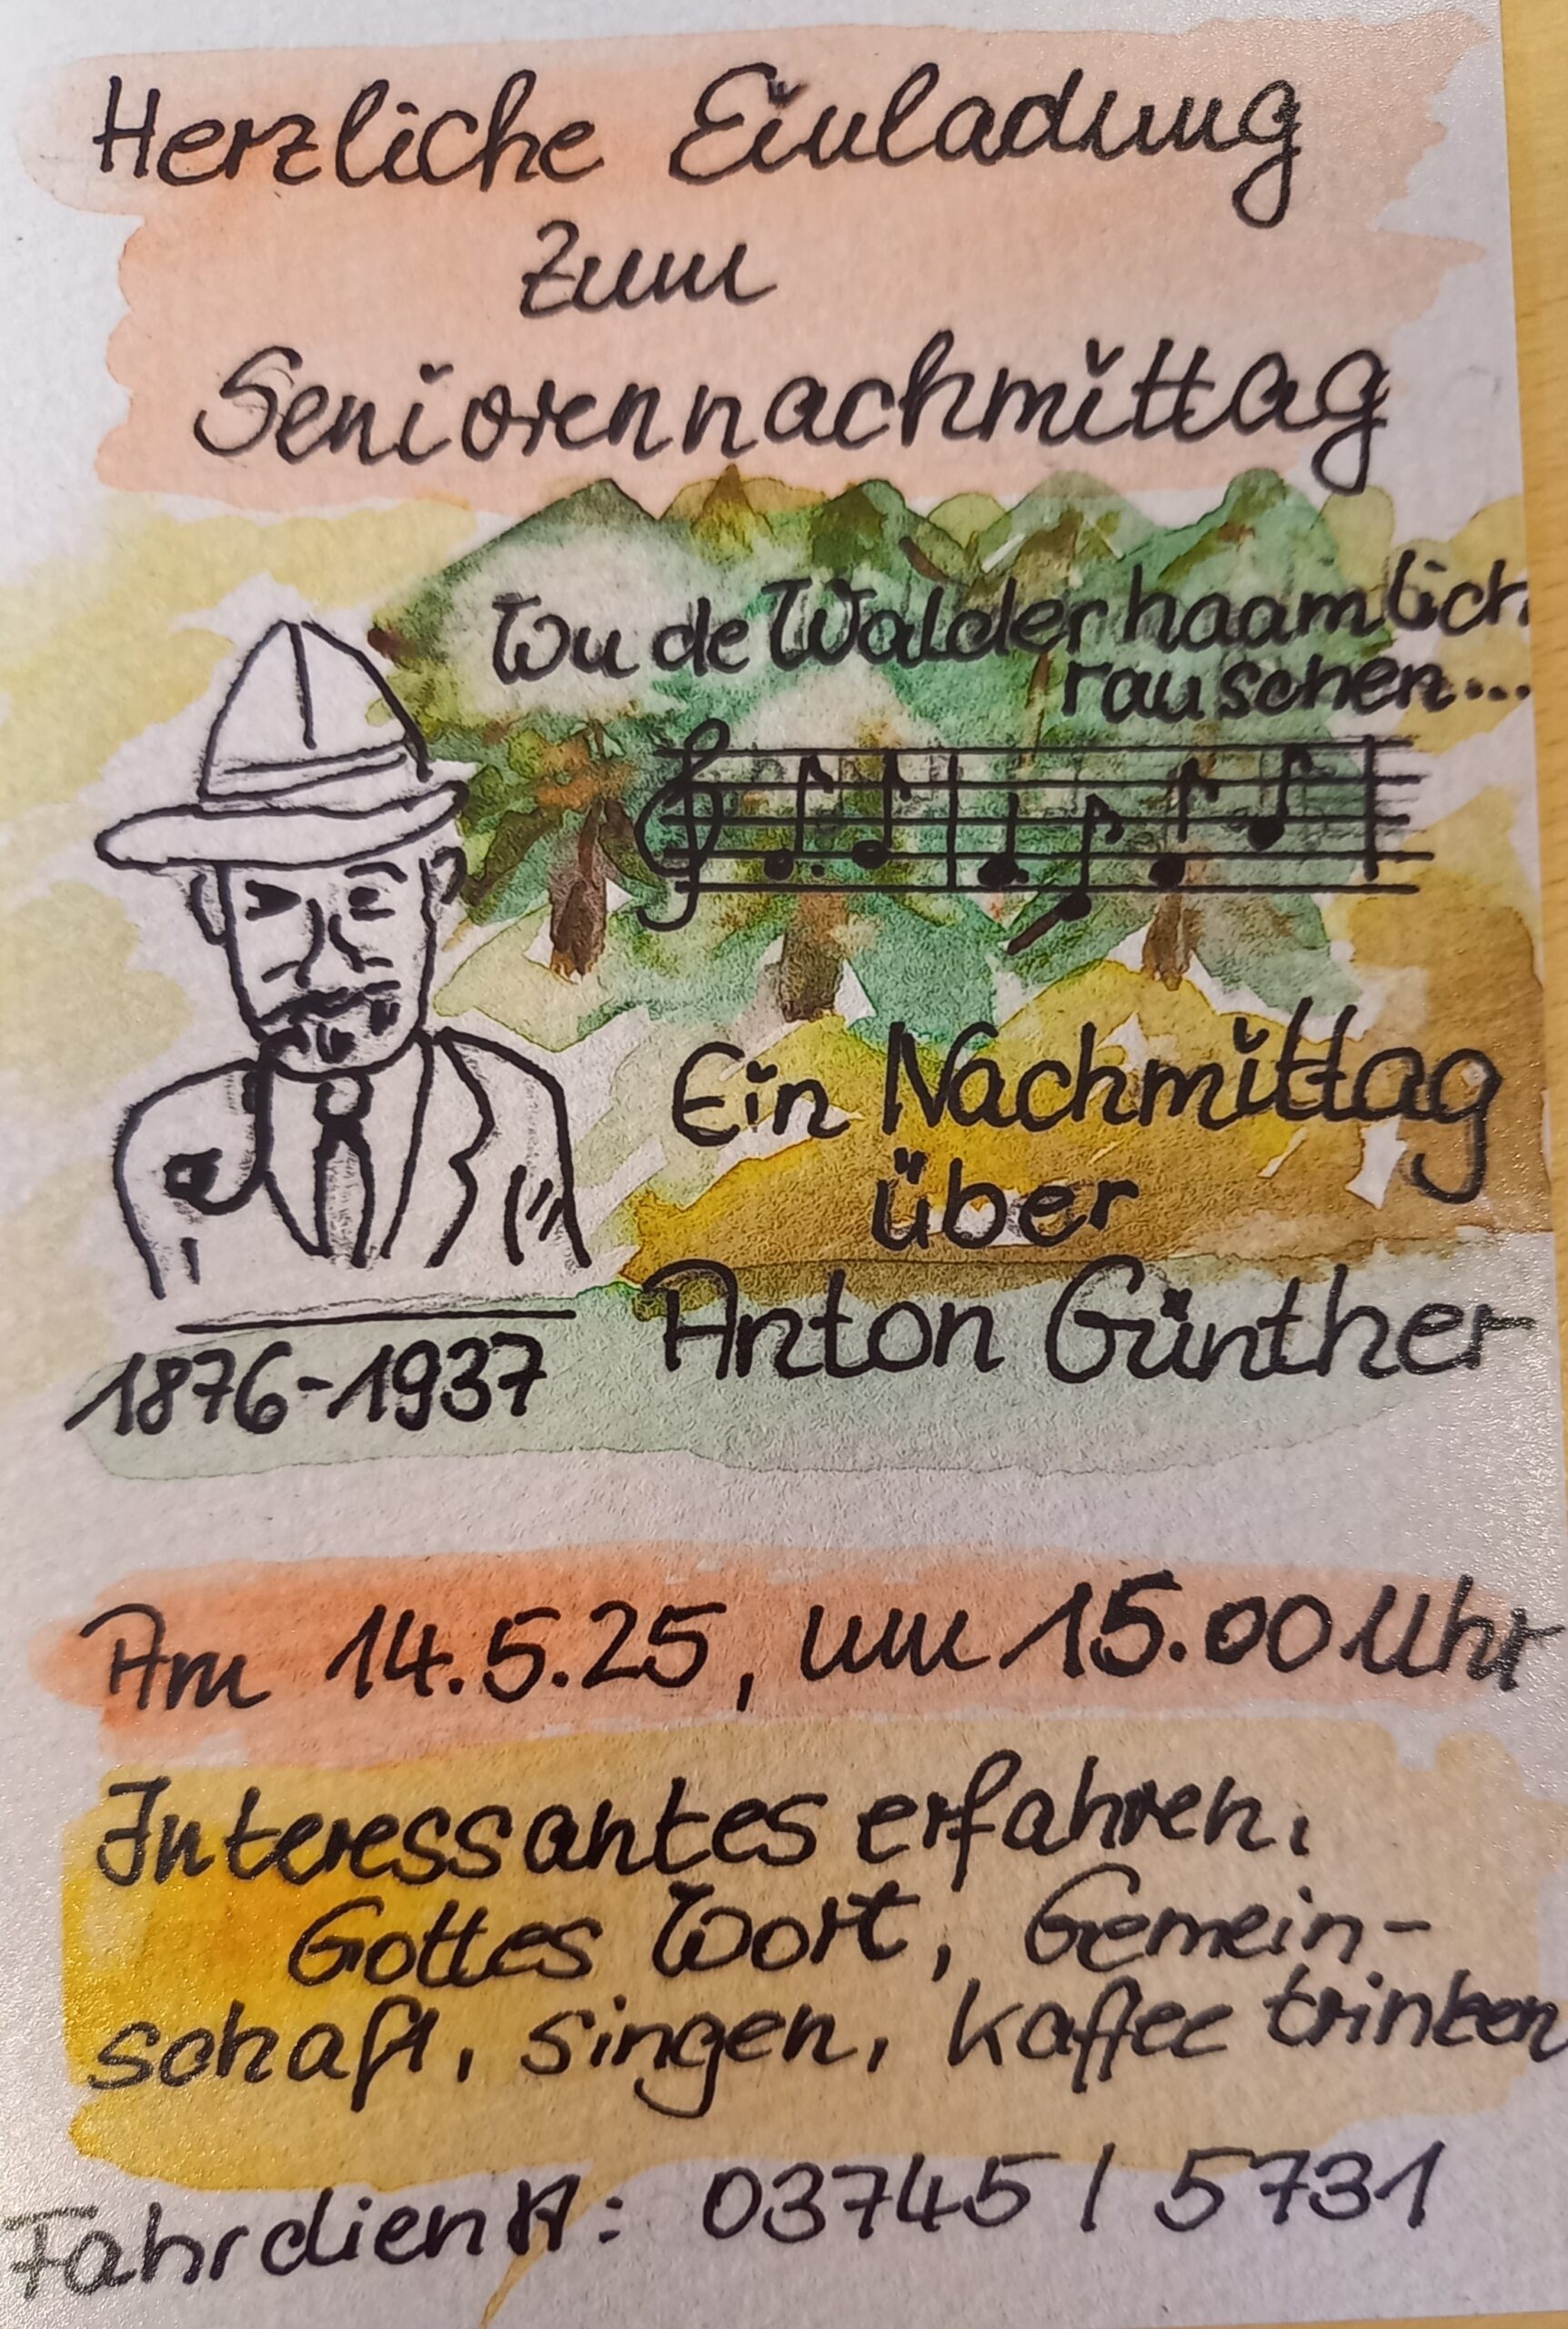 Herzliche Einladung
zum
Seniorennachmittag
Wu de Walder haamlich
rauschen...
Ein Nachmittag
über
Anton Günther
1876-1937
Am 14.5.25, um 15.00 Uhr
Interessantes erfahren,
Gottes Wort, Gemein-
schaft, singen, Kaffee trinken
Fahrdienst: 03745 / 5731